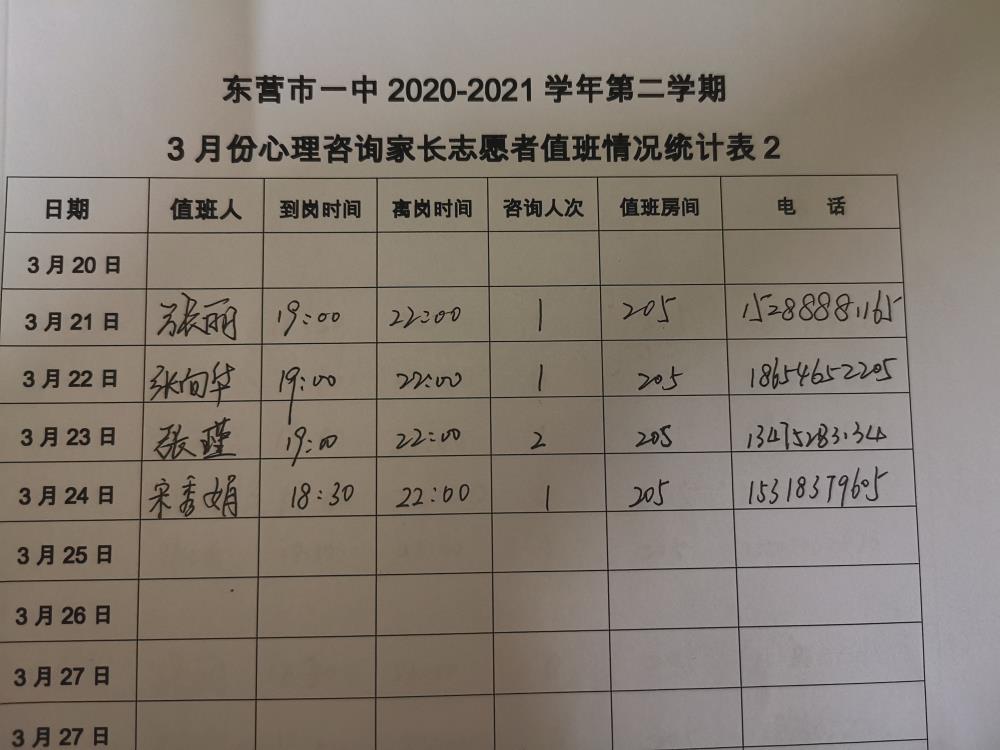 东营市一中 2020-2021 学年第二学期
3 月份心理咨询家长志愿者值班情况统计表 2
日期 值班人 到岗时间 离岗时间 咨询人次 值班房间 电 话
3 月 20 日
3 月 21 日 张丽 19:00 22:00 1 205 15288881165
3 月 22 日 张向华 19:00 22:00 1 205 18654652205
3 月 23 日 张瑾 19:00 22:00 2 205 13475283134
3 月 24 日 宋秀娟 18:30 22:00 1 205 15318379605
3 月 25 日
3 月 26 日
3 月 27 日
3 月 27 日